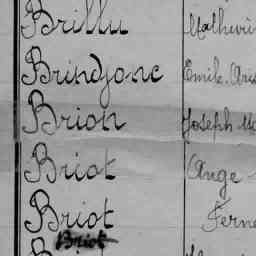 Brillu Mathurin
Brindjonc Émile
Brion Joseph
Briot Ange
Briot
Briot